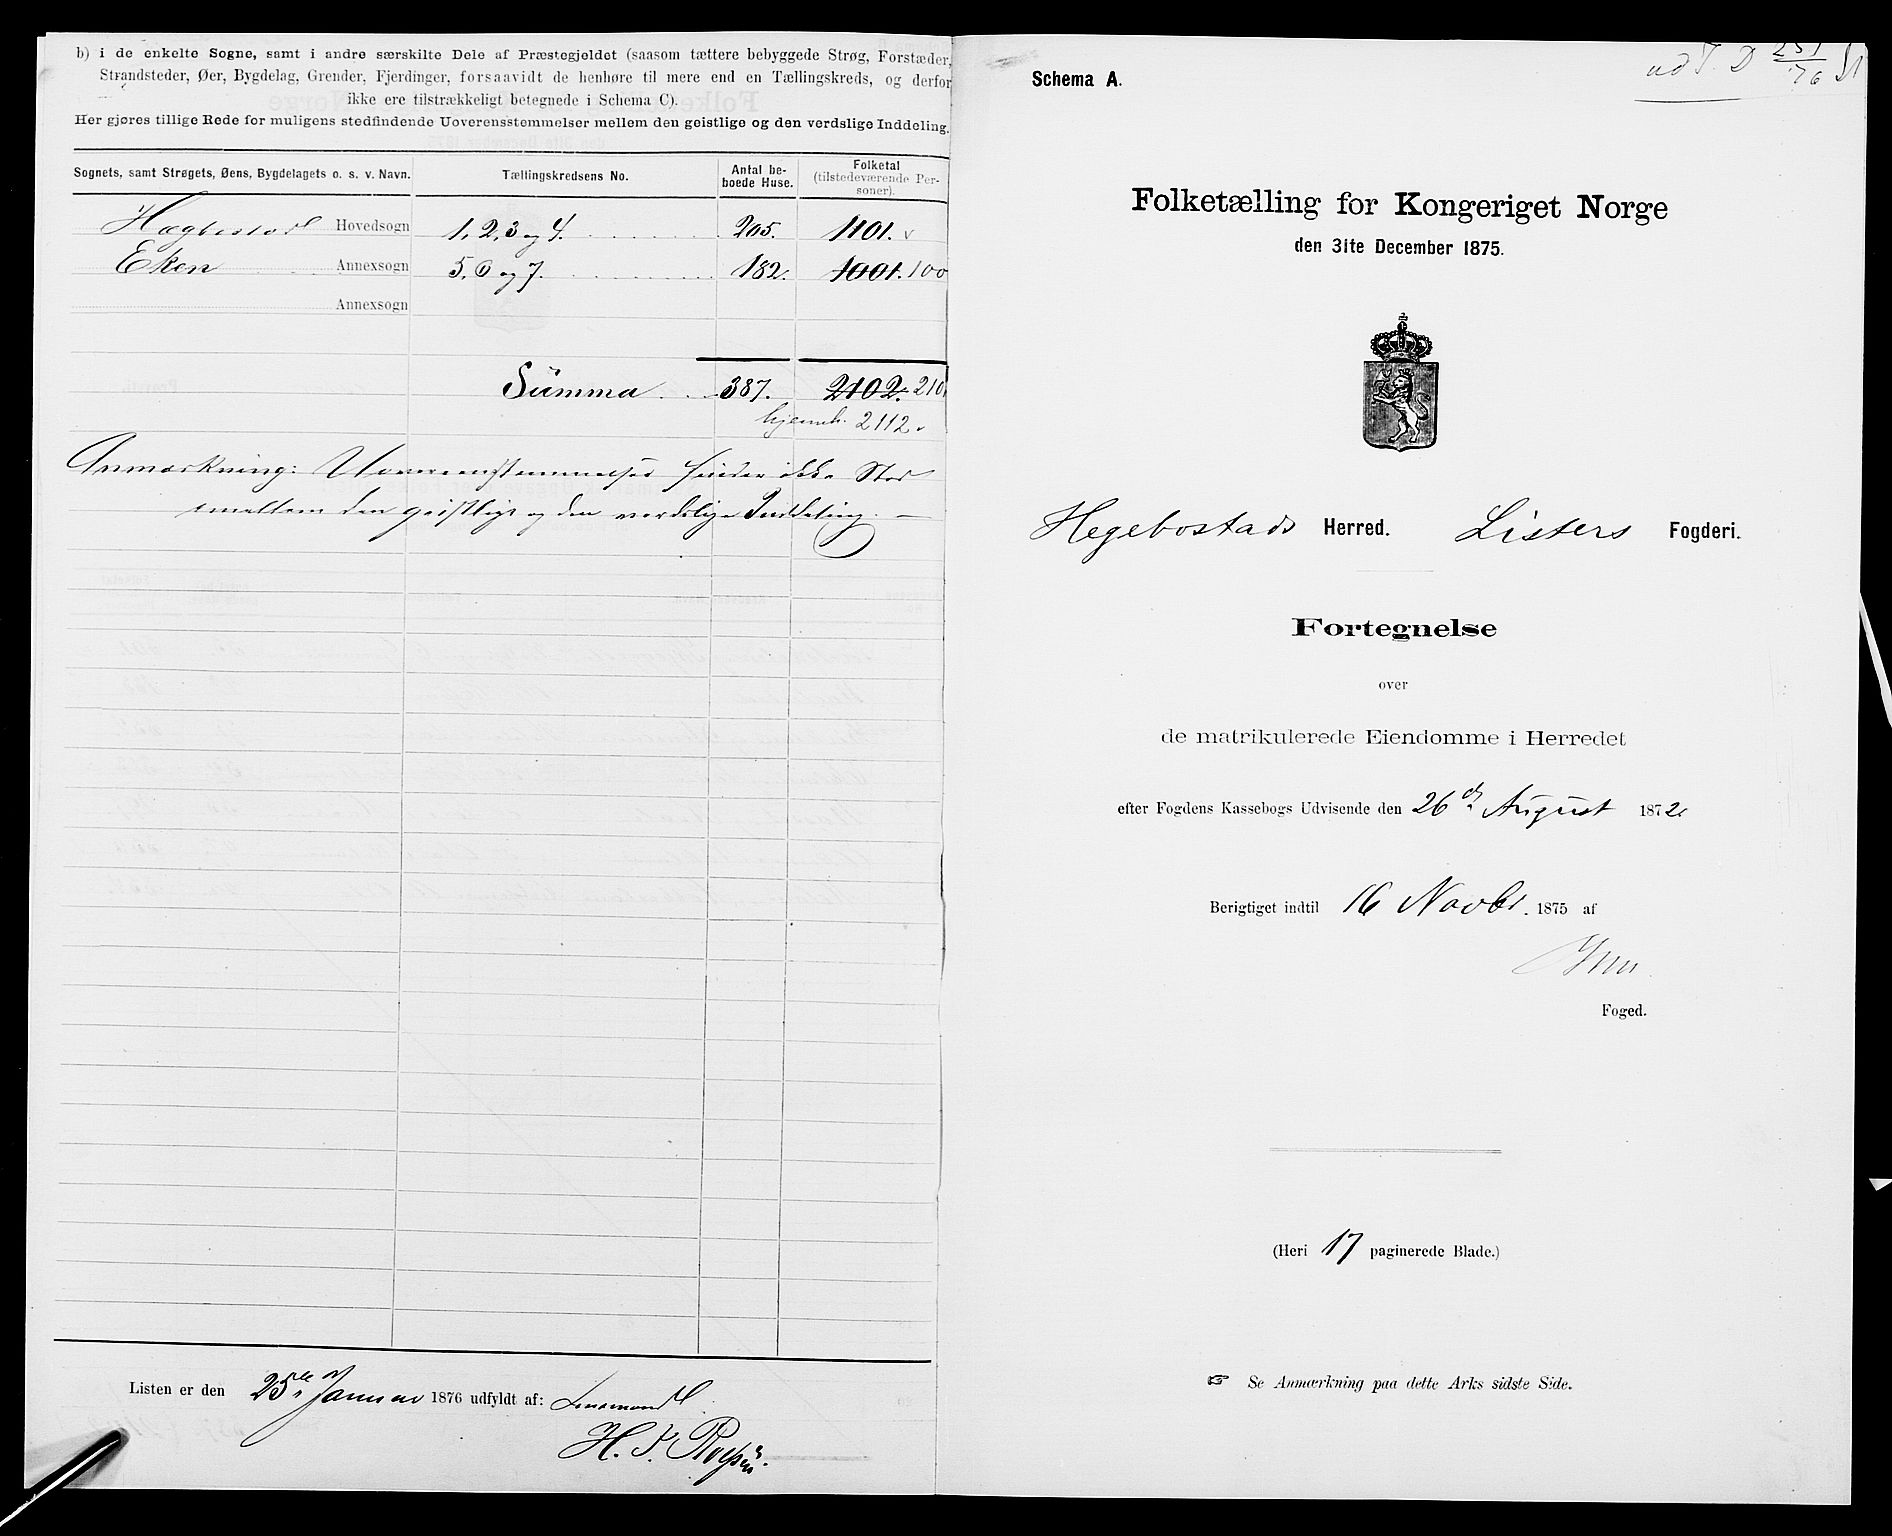 b) i de enkelte Sogne, samt i andre særskilte Dele af Præstegjeldet (saasom tættere bebyggede Strøg, Forstæder,
Strandsteder, Øer, Bygdelag, Grender, Fjerdinger, forsaavidt de henhøre til mere end en Tællingskreds, og derfor
ikke ere tilstrækkeligt betegnede i Schema C).
Her gjøres tillige Rede for muligens stedfindende Uoverensstemmelser mellem den geistlige og den verdslige Inddeling.
Sognets, samt Strøgets, Øens, Bygdelagets o. s. v. Navn. Tællingskredsens No. Antal beboede Huse. Folketal (tilstedeværende Personer).
Hægbostad Hovedsogn 1, 2, 3 og 4. 205. 1101.
Eken Annexsogn 5, 6 og 7. 182. 1001. 100
Annexsogn
Summa 387. 2102. 210
hjemh. 2112
Anmærkning: Uoverensstemmelser finder ikke Sted
mellem den geistlige og den verdslige Inddeling. —
Listen er den 25de Januar 1876 udfyldt af: Lensmand
H.
Schema A.
Folketælling for Kongeriget Norge
den 31te December 1875.
Hegebostads Herred. Listers Fogderi.
Fortegnelse
over
de matrikulerede Eiendomme i Herredet
efter Fogdens Kassebogs Udvisende den 26de August 1872
Berigtiget indtil 16 Novbr. 1875 af
Foged.
(Heri 17 paginerede Blade.)
☞ Se Anmærkning paa dette Arks sidste Side.